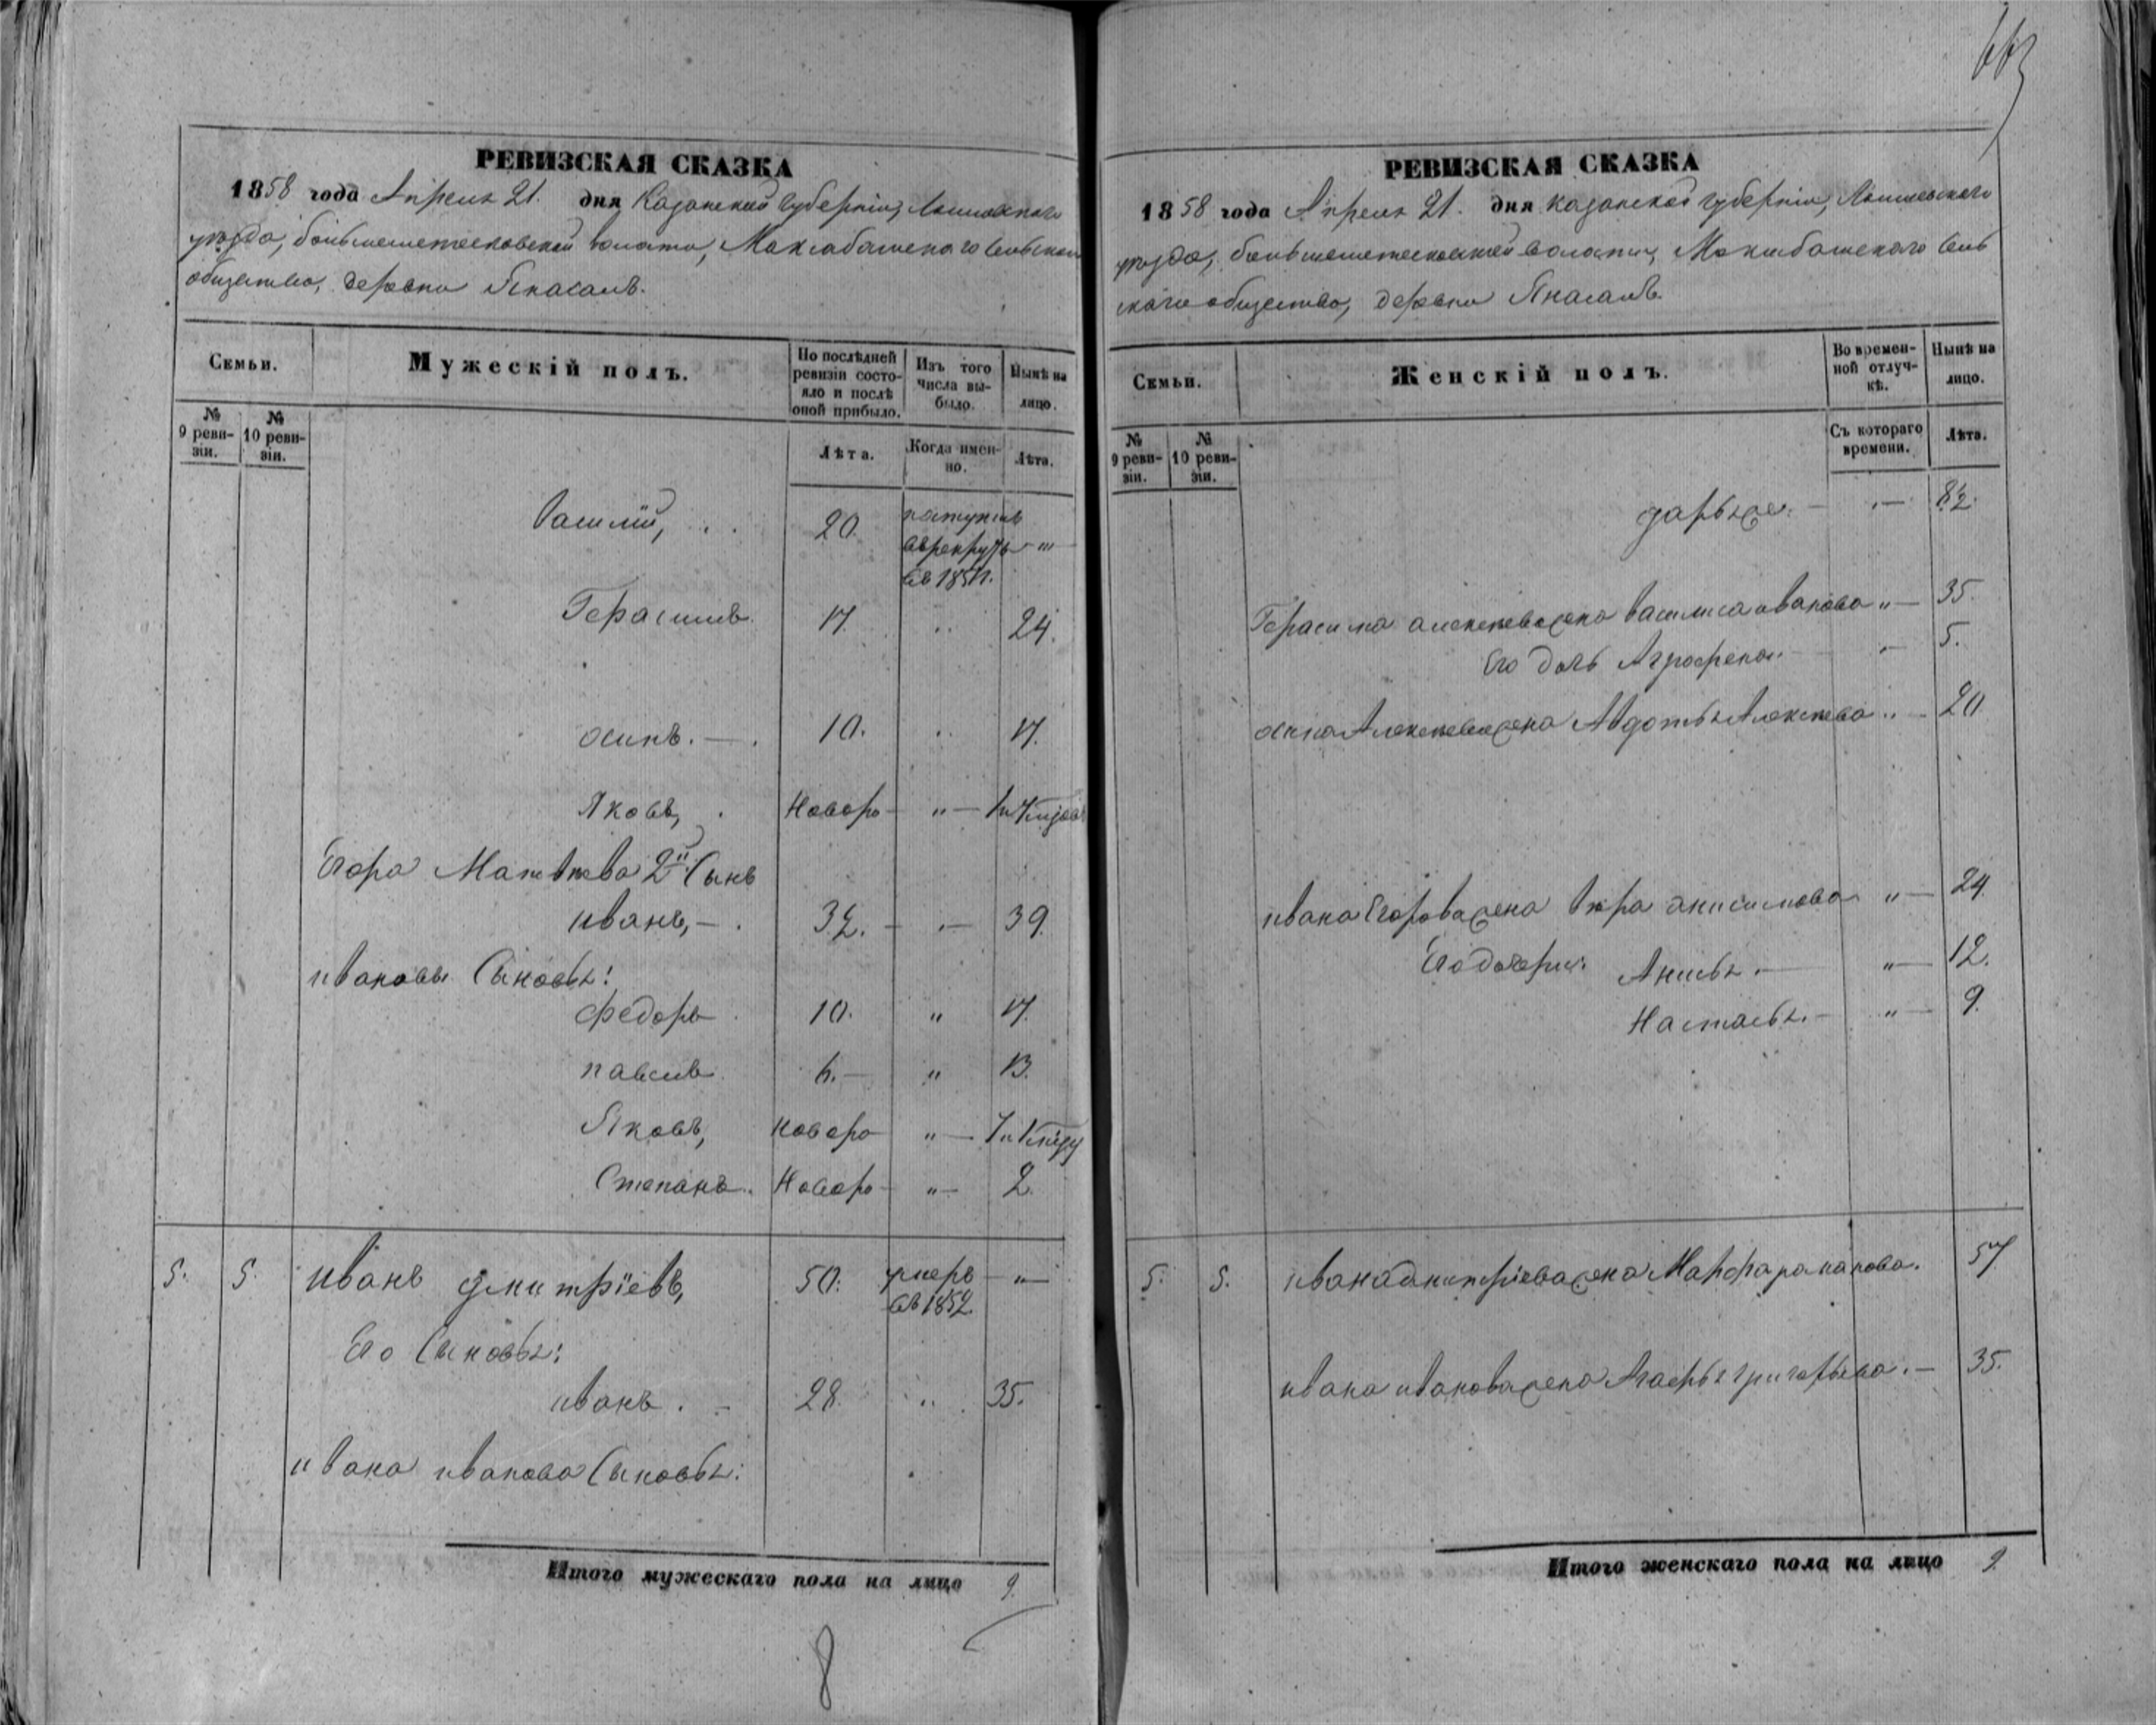 РЕВИЗСКАЯ СКАЗКА
1858 года Апреля 21. дня Казанской губернiи, Лаишевского
уезда, волости, Сельского
общества, деревни Янасалъ.
Семьи.
Мужескiй полъ.
По послѣдней ревизiи состояло и послѣ оной прибыло.
Изъ того числа выбыло.
Нынѣ на лицо.
№ 9 ревизiи.
№ 10 ревизiи.
Лѣта.
Когда именно.
Лѣта.
Василiй, 20. въ рекруты "
Герасимъ. 17. " 24.
осипъ. — 10. " 17.
Яковъ, Новоро — " —
Егора Матвѣева 2й Сынъ
иванъ, — 32. — " — 39.
ивановы Сыновья:
федоръ 10. " 17.
павелъ 6. — " 13.
Яковъ, Новоро " —
Степанъ. Новоро — " — 2.
5. 5. иванъ дмитрiевъ, 50. умеръ въ 1852. — " —
Его Сыновья:
иванъ. — 28. " 35.
ивана иванова Сыновья:
Итого мужескаго пола на лицо 9.
8
РЕВИЗСКАЯ СКАЗКА
1858 года Апреля 21. дня казанской губернiи, Лаишевского
уезда, волости, Сель
ского общества, деревни Янасалъ.
Семьи.
Женскiй полъ.
Во временной отлучкѣ.
Нынѣ на лицо.
№ 9 ревизiи.
№ 10 ревизiи.
Съ котораго времени.
Лѣта.
дарья. — " —
Герасима алексѣева жена василиса иванова " — 35.
Его дочь Аграфена. — " 5.
осипа Алексѣева жена Авдотья Алексѣева " — 20
ивана Егорова жена вѣра анисимова " — 24.
Его дочери: Анисья. — " — 12.
Настасья. — " — 9.
5. 5. ивана дмитрiева жена Марфа романова. 57
ивана иванова жена Агафья григорьева. — 35.
Итого женскаго пола на лицо 9